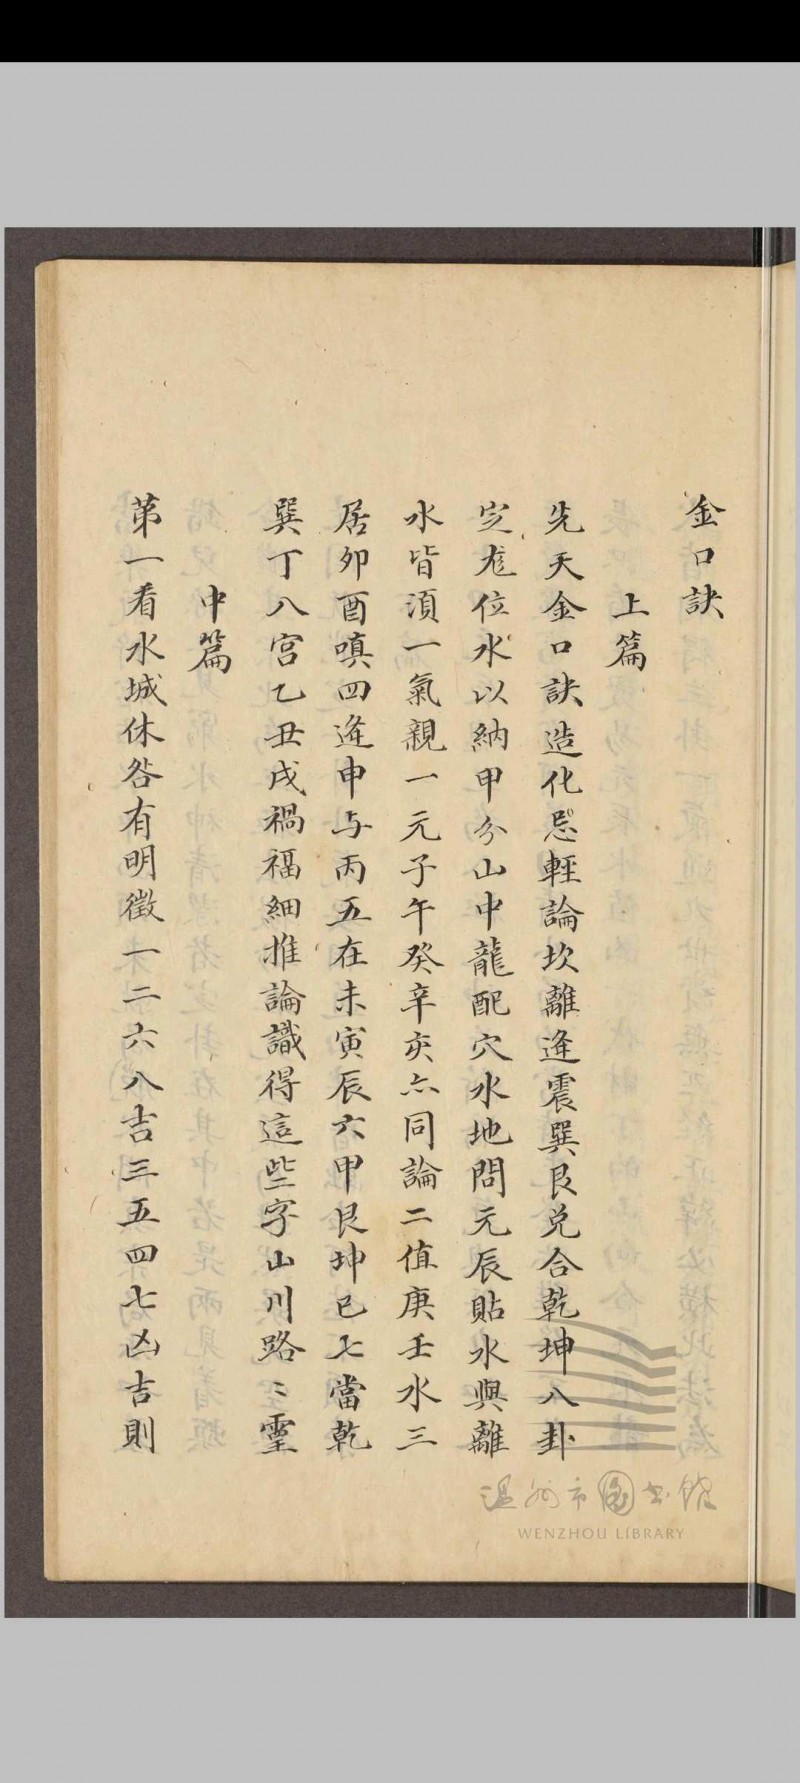 金口訣
上篇
先天金口訣造化忌輕論坎離逢震巽艮兌合乾坤八卦
定尨位水以納甲分山中龍配穴水地問元辰貼水與離
水皆須一氣親一元子午癸辛亥亦同論二值庚壬水三
居卯酉嗔四逄申与丙五在未寅辰六甲艮坤巳七當乾
巽丁八宮乙丑戌禍福細推論識得這些字山川路〻靈
中篇
第一看水城休咎有明徵一二六八吉三五四七凶吉則
温州市圖书馆
WENZHOU LIBRARY